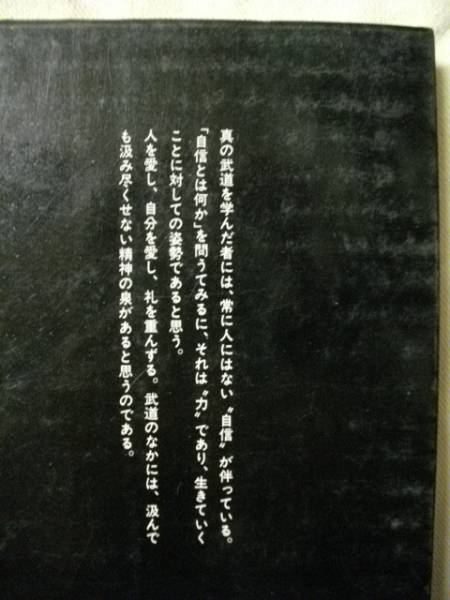 真の武道を学んだ者には、常に人にはない〝自信〟が伴っている。
「自信とは何か」を問うてみるに、それは〝力〟であり、生きていく
ことに対しての姿勢であると思う。
人を愛し、自分を愛し、礼を重んずる。武道のなかには、汲んで
も汲み尽くせない精神の泉があると思うのである。